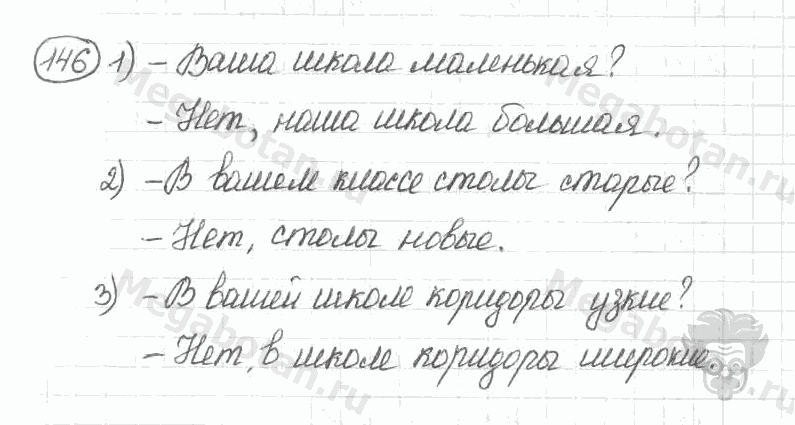 146 1) – Ваша школа маленькая?
– Нет, наша школа большая.
2) – В вашем классе столы старые?
– Нет, столы новые.
3) – В вашей школе коридоры узкие?
– Нет, в школе коридоры широкие.
Megabotan.ru
Megabotan.ru
Megabotan.ru
Megabotan.ru